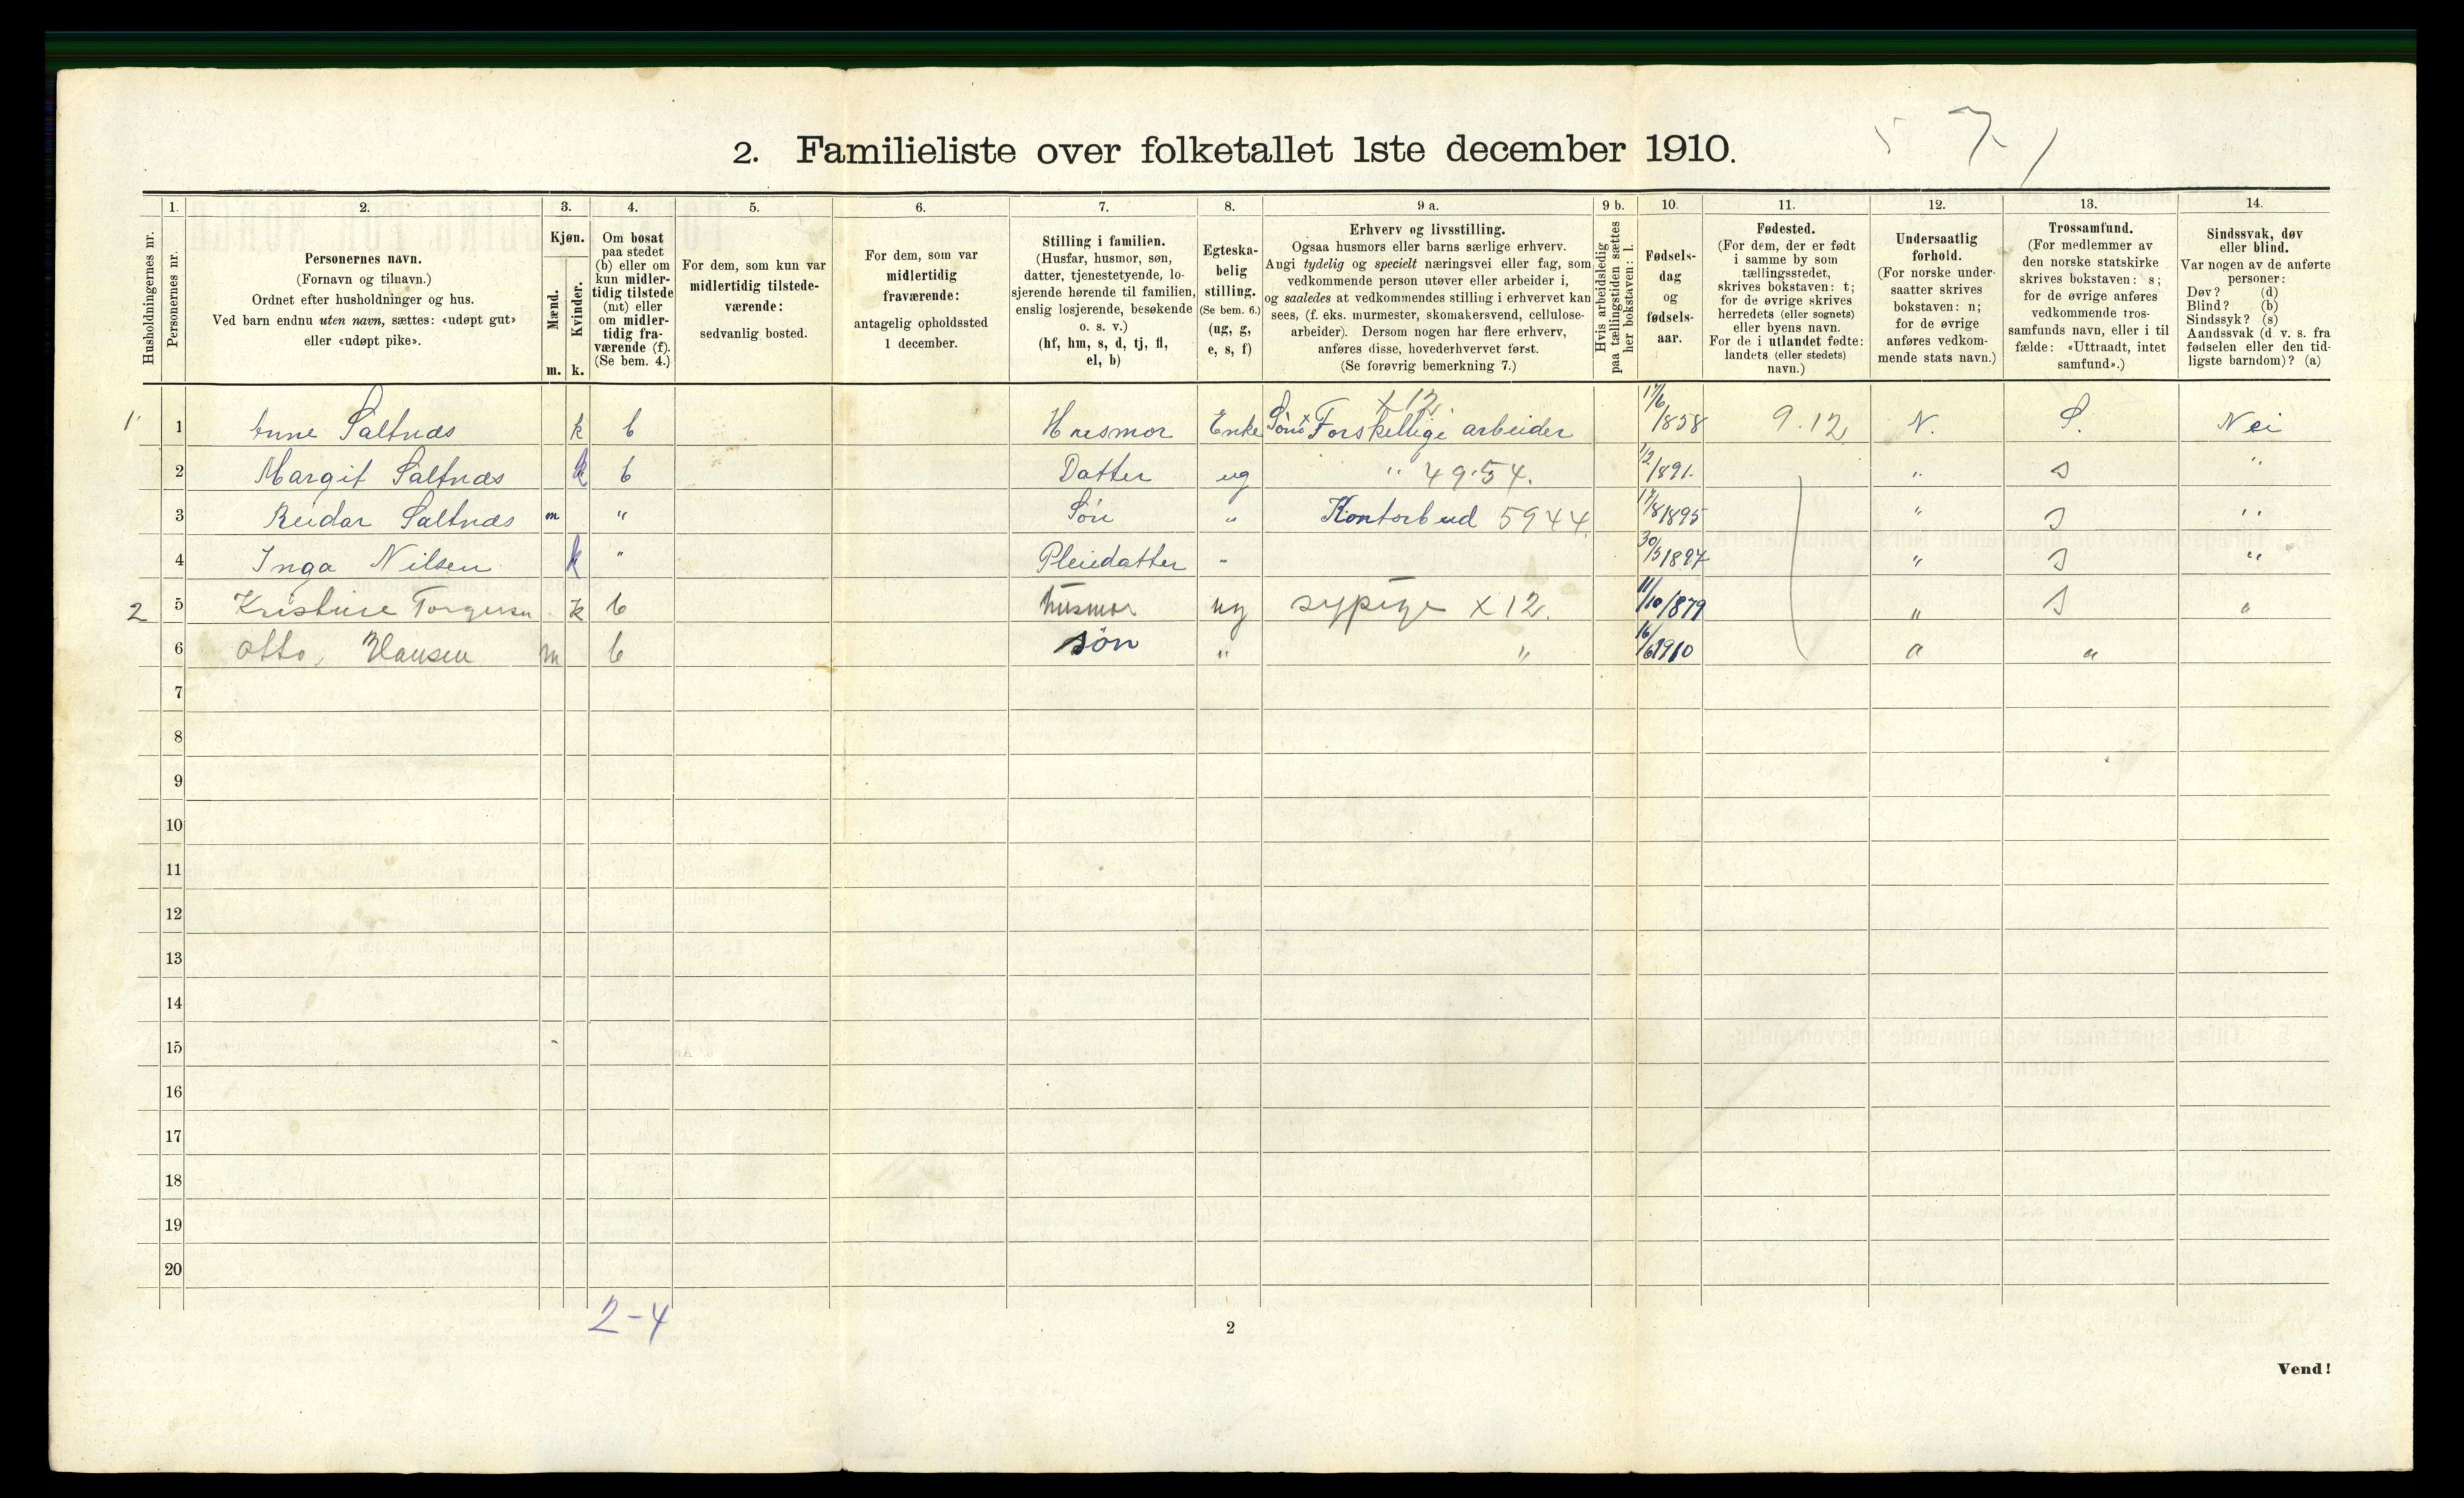 5 7 /
2. Familieliste over folketallet 1ste december 1910.
Husholdningernes nr.
1.
Personernes nr.
2.
Personernes navn.
(Fornavn og tilnavn.)
Ordnet efter husholdninger og hus.
Ved barn endnu uten navn, sættes: «udøpt gut»
eller «udøpt pike».
3.
Kjøn.
Mænd.
Kvinder.
m. k.
4.
Om bosat
paa stedet
(b) eller om
kun midler-
tidig tilstede
(mt) eller
om midler-
tidig fra-
værende (f).
(Se bem. 4.)
5.
For dem, som kun var
midlertidig tilstede-
værende:
sedvanlig bosted.
6.
For dem, som var
midlertidig
fraværende:
antagelig opholdssted
1 december.
7.
Stilling i familien.
(Husfar, husmor, søn,
datter, tjenestetyende, lo-
sjerende hørende til familien,
enslig losjerende, besøkende
o. s. v.)
(hf, hm, s, d, tj, fl,
el, b)
8.
Egteska-
belig
stilling.
(Se bem. 6.)
(ug, g,
e, s, f)
9 a.
Erhverv og livsstilling.
Ogsaa husmors eller barns særlige erhverv.
Angi tydelig og specielt næringsvei eller fag, som
vedkommende person utøver eller arbeider i,
og saaledes at vedkommendes stilling i erhvervet kan
sees, (f. eks. murmester, skomakersvend, cellulose-
arbeider). Dersom nogen har flere erhverv,
anføres disse, hovederhvervet først.
(Se forøvrig bemerkning 7.)
9 b.
Hvis arbeidsledig
paa tællingstiden sættes
her bokstaven: l.
10.
Fødsels-
dag
og
fødsels-
aar.
11.
Fødested.
(For dem, der er født
i samme by som
tællingsstedet,
skrives bokstaven: t;
for de øvrige skrives
herredets (eller sognets)
eller byens navn.
For de i utlandet fødte:
landets (eller stedets)
navn.)
12.
Undersaatlig
forhold.
(For norske under-
saatter skrives
bokstaven: n;
for de øvrige
anføres vedkom-
mende stats navn.)
13.
Trossamfund.
(For medlemmer av
den norske statskirke
skrives bokstaven: s;
for de øvrige anføres
vedkommende tros-
samfunds navn, eller i til
fælde: «Uttraadt, intet
samfund».)
14.
Sindssvak, døv
eller blind.
Var nogen av de anførte
personer:
Døv? (d)
Blind? (b)
Sindssyk? (s)
Aandssvak (d. v. s. fra
fødselen eller den tid-
ligste barndom)? (a)
1 1 Anne Saltnæs k b Husmor Enke x 12 Forskellige arbeider 17/6 1858 9.12 N. S. Nei
2 Margit Saltnæs k b Datter ug " 49.54. 1/2 1891. " s "
3 Reidar Saltnæs m " Søn " Kontorbud 5944. 17/8 1895 " s "
4 Inga Nilsen k " Pleiedatter " 30/3 1897 " s "
2 5 Kristine Torgersen k b husmor ug sypige x 12. 11/10 1879 " s "
6 Otto Hansen m b søn " " 16/6 1910 " "
7
8
9
10
11
12
13
14
15
16
17
18
19
20
2-4
2
Vend!